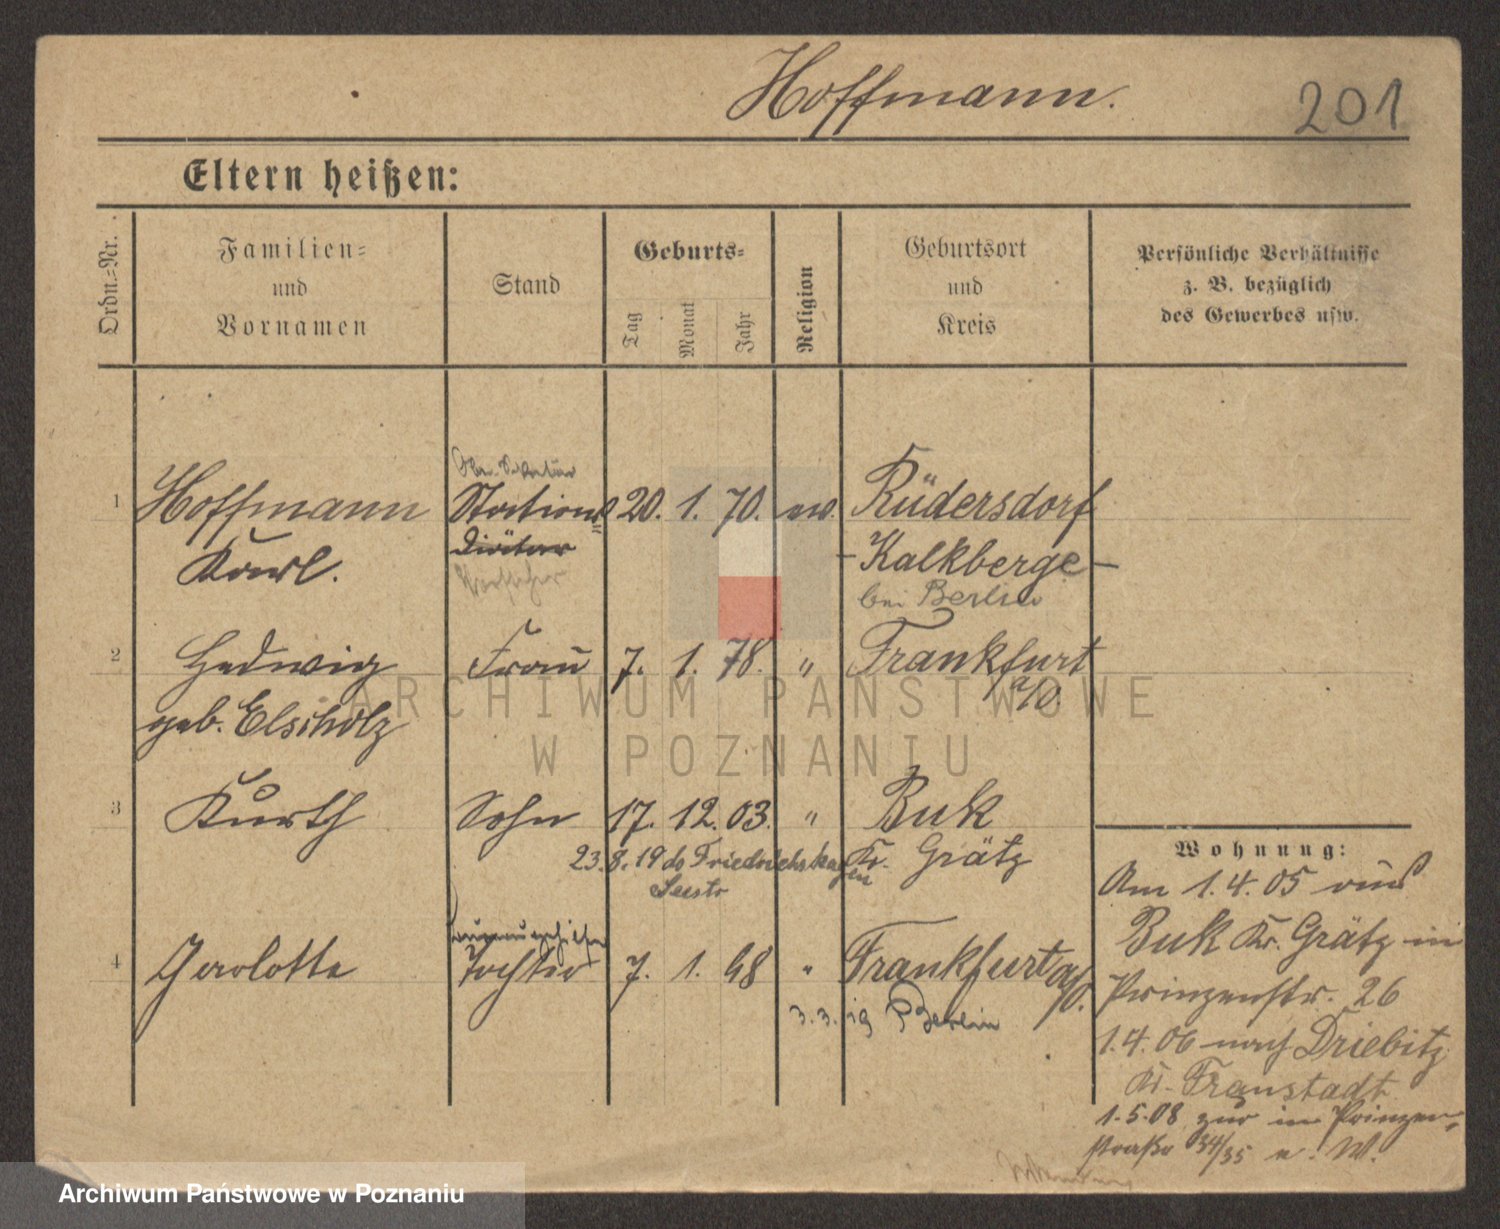 Hoffmann. 201
Eltern heißen:
Ordn.-Nr.
Familien-
und
Vornamen
Stand
Geburts-
Tag
Monat
Jahr
Religion
Geburtsort
und
Kreis
Persönliche Verhältnisse
z. B. bezüglich
des Gewerbes usw.
1 Hoffmann Stations 20. 1. 70. ev. Rüdersdorf
Karl. Diätar - Kalkberge -
bei Berlin
2 Hedwig Frau 7. 1. 78. " Frankfurt
a/O.
geb. Elscholz
3 Kurth Sohn 17. 12. 03. " Buk
Kr. Grätz
23.8.19 do Friedrichshagen
Seestr
4 Tochter 7. 1. 98 " Frankfurt a/O.
3.3.19 Berlin
Wohnung:
Am 1.4.05 aus
Buk Kr. Grätz in
Prinzenstr. 26
1.4.06 nach Driebitz
Kr. Fraustadt
1.5.08 zur in Prinzen-
straße 34/35 a. W.
ARCHIWUM PAŃSTWOWE
W POZNANIU
Archiwum Państwowe w Poznaniu